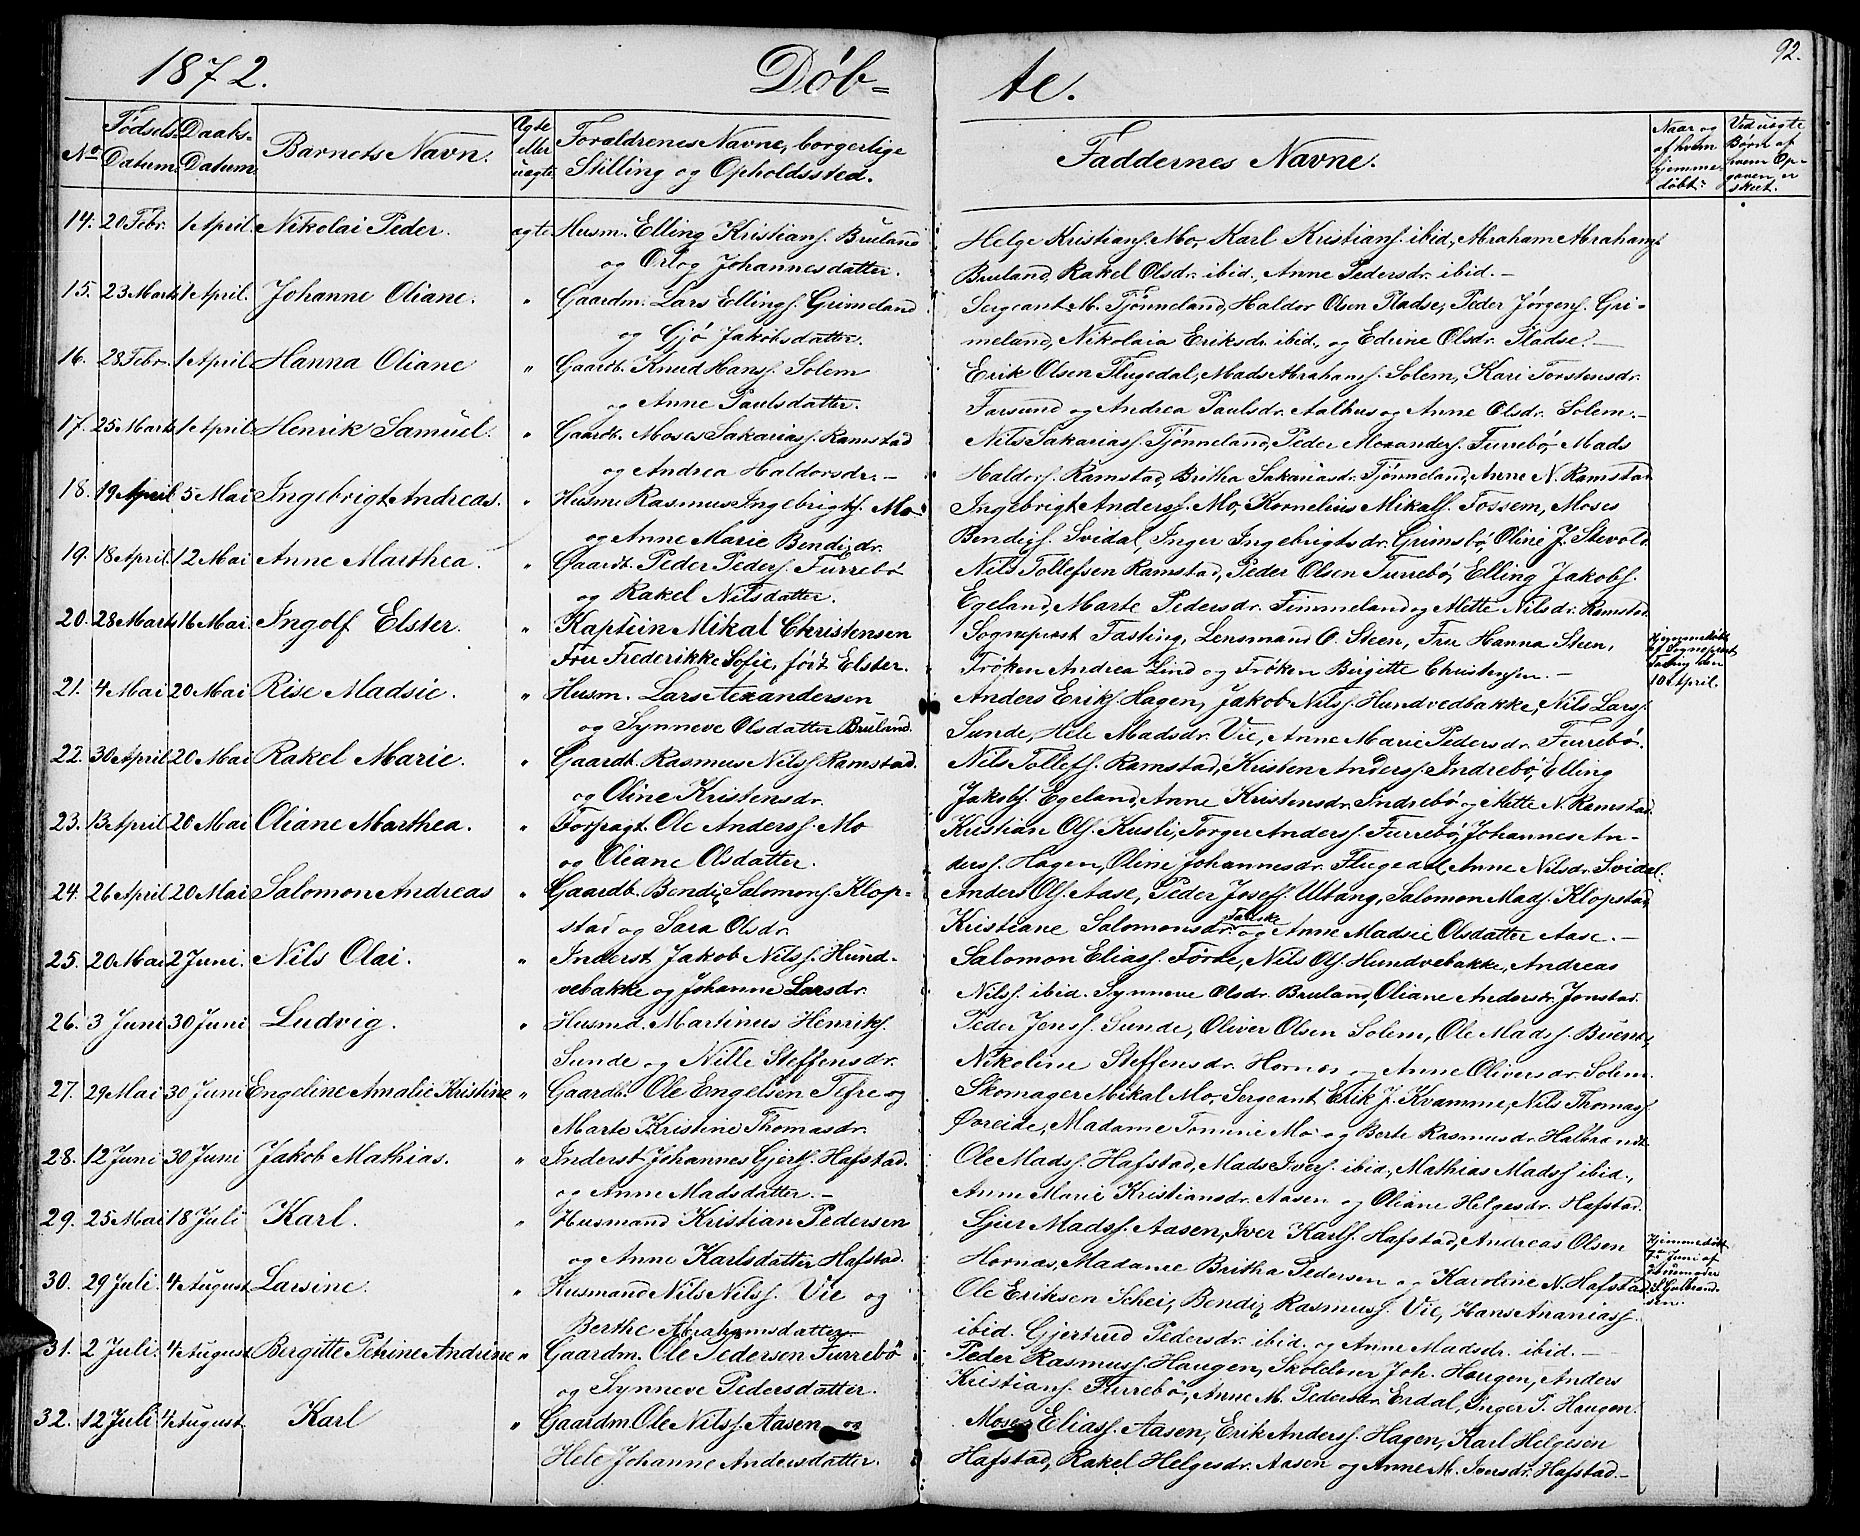 92.
1872. Døb- te.
No Fødsels-Datum. Daabs-Datum. Barnets Navn. Ægte eller uægte Forældrenes Navne, borgerlige Stilling og Opholdssted. Faddernes Navne. Naar og af hvem hjemmedøbt. Ved uægte Børn af hvem Opgaven er skeet.
14. 20 Febr. 1 April. Nikolai Peder. ægte Husm. Elling Kristians. Bruland Helge Kristians. Mo, Karl Kristians. ibid, Abraham Abrahams.
og Orlog Johannesdatter. Bruland, Rakel Olsdr. ibid., Anne Pedersdr. ibid.-
15. 23 Marts 1 April. Johanne Oliane. " Gaardm. Lars Ellings. Grimeland Sergeant M. Tjønneland, Haldor Olsen Pladse, Peder Jørgens. Gri-
og Gjø Jakobsdatter. meland, Nikolaia Eriksdr. ibid, og Edrine Olsdr. Pladse.-
16. 28 Febr. 1 April Hanna Oliane " Gaardb. Knud Hans. Solem Erik Olsen Flugedal, Mads Abrahams. Solem, Kari Torstensdr.
og Anne Paulsdatter. Farsund og Andrea Paulsdr. Aalhus og Anne Olsdr. Solem.-
17. 25 Marts 1 April Henrik Samuel. " Gaardb. Moses Sakarias. Ramstad Nils Sakarias. Tjønneland, Peder Alexanders. Furrebø, Mads
og Andrea Haldorsdr.- Haldors. Ramstad, Britha Sakariasdr. Tjønneland, Anne N. Ramstad
18. 19 April 5 Mai Ingebrigt Andreas. " Husm. Rasmus Ingebrigts. Mo Ingebrigt Anders. Mo, Kornelius Mikals. Fossem, Moses
og Anne Marie Bendixdr. Bendix. Svidal, Inger Ingebrigtsdr. Grimsbø, Oline J. Stevold.
19. 18 April 12 Mai Anne Marthea. " Gaardb. Peder Peders. Furrebø Nils Tollefsen Ramstad, Peder Olsen Furrebø, Elling Jakobs.
og Rakel Nilsdatter. Egeland, Marte Pedersdr. Fimmeland og Mette Nilsdr. Ramstad.
20. 28 Marts 16 Mai. Ingolf Elster. " Kaptein Mikal Christensen Sognepræst Tasting, Lensmand O. Steen, Fru Hanna Steen, Hjemmedøbt af Sognepræst Tasting den 10 April.
Fru Frederikke Sofie, født Elster. Frøken Andrea Lind og Frøken Birgitte Christensen.-
21. 4 Mai 20 Mai Rise Madsie. " Husm. Lars Alexandersen Anders Eriks. Hagen, Jakob Nils. Hundvedbakke, Nils Lars.
og Synneve Olsdatter Bruland. Sunde, Hele Madsdr. Vie, Anne Marie Pedersdr. Furrebø.
22. 30 April 20 Mai Rakel Marie. " Gaardb. Rasmus Nils. Ramstad. Nils Tollefs. Ramstad, Kristen Anders. Indrebø, Elling
og Oline Kristensdr. Jakobs. Egeland, Anne Kristensdr. Indrebø og Mette N. Ramstad.
23. 13 April 20 Mai Oliane Marthea. " Forpagt. Ole Anders. Mo Kristian Ols. Kusli, Torger Anders. Furrebø, Johannes An-
og Oliane Olsdatter. ders. Hagen, Oline Johannesdr. Flugedal, Anne Nilsdr. Svidal.
24. 26 April 20 Mai Salomon Andreas " Gaardb. Bendix Salomons. Klop- Anders Ols. Aase, Peder Josefs. Ultang, Salomon Mads. Klopstad,
stad og Sara Olsdr. Kristiane Salomonsdr. og Anne Madsie Olsdatter Aase.-
25. 20 Mai 2 Juni. Nils Olai. " Inderst Jakob Nils. Hund- Salomon Elias. Førde, Nils Ols. Hundvebakke, Andreas
vebakke og Johanne Larsdr. Nils. ibid. Synneve Olsdr. Bruland, Oliane Andersdr. Jonstad.
26. 3 Juni 30 Juni Ludvig. " Husmd. Martinus Henriks. Peder Jens. Sunde, Oliver Olsen Solem, Ole Mads. Buene,
Sunde og Nille Steffensdr. Nikoline Steffensdr. Hornes og Anne Oliversdr. Solem.
27. 29 Mai 30 Juni Engeline Amalie Kristine " Gaardb. Ole Engelsen Tefre og Skomager Mikal Mo, Sergeant Erik J. Kvamme, Nils Thomas.
Marte Kristine Thomasdr. Øvreide, Madame Tomine Mo og Berte Rasmusdr. Halbrandt.
28. 12 Juni 30 Juni Jakob Mathias. " Inderst Johannes Gjerts. Hafstad. Ole Mads. Hafstad, Mads Ivers. ibid, Mathias Mads. ibid.,
og Anne Madsdatter.- Anne Marie Kristiansdr. Aasen og Oliane Helgesdr. Hafstad.
29. 25 Mai 18 Juli Karl. " Husmand Kristian Pedersen Gjer Mads. Aasen, Iver Karls. Hafstad, Andreas Olsen Hjemmedøbt 7de Juni af
og Anne Karlsdatter Hafstad. Hornæs, Madame Britha Pedersen og Karoline N. Hafstad.
30. 29 Juli 4 August Larsine. " Husmand Nils Nils. Vie og Ole Eriksen Schei, Bendix Rasmus. Vie, Hans Ananias.
Berthe Abrahamsdatter. ibid. Gjertrud Pedersdr. ibid. og Anne Madsdr. ibid.-
31. 2 Juli. 4 August Bergitte Petrine Andrine " Gaardm. Ole Pedersen Furrebø Peder Rasmus. Haugen, Skolelærer Joh. Haugen, Anders
og Synneve Pedersdatter. Kristians. Furrebø, Anne M. Pedersdr. Erdal, Inger P. Haugen.
32. 12 Juli 4 August Karl " Gaardm. Ole Nils. Aasen og Moses Elias. Aasen, Erik Anders. Hagen, Karl Helgesen
Hele Johanne Andersdatter. Hafstad, Rakel Helgesdr. Aasen og Anne M. Iversdr. Hafstad.-